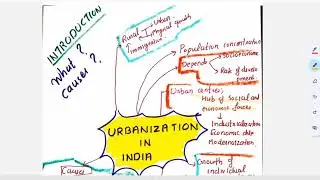 INTRODUCTION
What ?
causes ?
Rural → Urban
→ Physical growth
Immigration
Population concentration
Depends
Socioeconomic
Risk of
Urban centres;
Hub of Social and
economic forces
Industrialization
Economic
Modernization
URBANIZATION
IN
INDIA
Causes
Growth of
individual